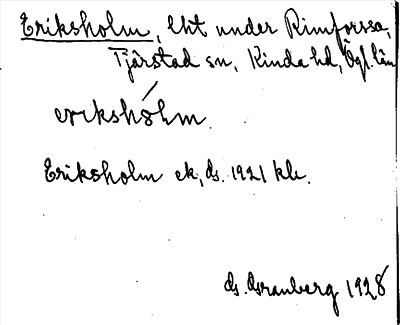 Eriksholm, lht under Rimforssa,
Tjärstad sn, Kinda hd, Ögl. län
erikshòlm.
Eriksholm ek, ds. 1921 kle.
G. Granberg 1928